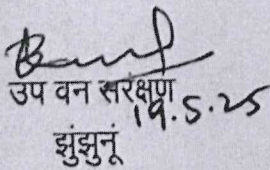 उप वन संरक्षण
19.5.25
झुंझुनूं